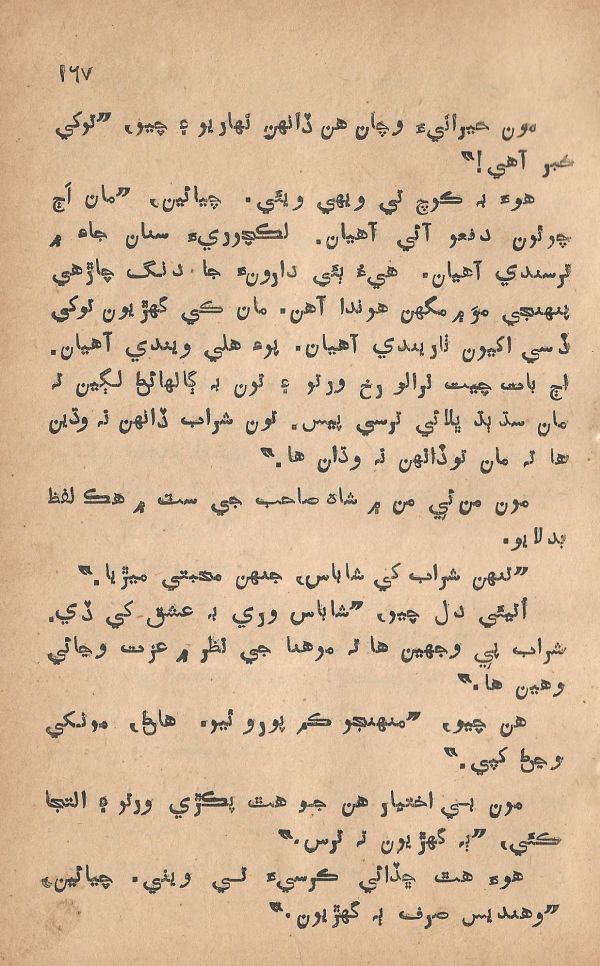 ١٦٧
مون حيرانيءَ وچان هن ڏانهن نهاريو ۽ چيو، ”توکي
خبر آهي!“
هوءَ بہ ڪوچ تي ويهي ويئي. چيائين، ”مان اڄ
چوٿون دفعو آئي آهيان. لڪچوريءَ سنان جاءِ ۾
ترسندي آهيان. هيءُ ٻئي دارونءَ جا دنگ چاڙهي
پنهنجي موَ ۾ مگهن هوندا آهن. مان ڪي گهڙيون توکي
ڏسي اکيون ٺاريندي آهيان. پوءِ هلي ويندي آهيان.
اڄ بات چيت نرالو رخ ورتو ۽ تون بہ ڳالهائڻ لڳين تہ
مان سڌ ٻڌ ڀلائي ترسي پيس. تون شراب ڏانهن نہ وڌين
ها تہ مان توڏانهن نہ وڌان ها.“
مون من ئي من ۾ شاھ صاحب جي ست ۾ هڪ لفظ
بدلايو.
”تنهن شراب کي شاباس، جنهن محبتي ميڙيا.“
اُتيئي دل چيو، ”شاباس وري بہ عشق کي ڏي.
شراب پي وجهين ها تہ موهنا جي نظر ۾ عزت وڃائي
وهين ها.“
هن چيو، ”منهنجو ڪم پورو ٿيو. هاڻ، مونکي
وڃڻ کپي.“
مون بي اختيار هن جو هٿ پڪڙي ورتو ۽ التجا
ڪئي، ”ٻہ گهڙيون تہ ترس.“
هوءَ هٿ ڇڏائي ڪرسيءَ تي ويٺي. چيائين،
”وهنديس صرف ٻہ گهڙيون.“